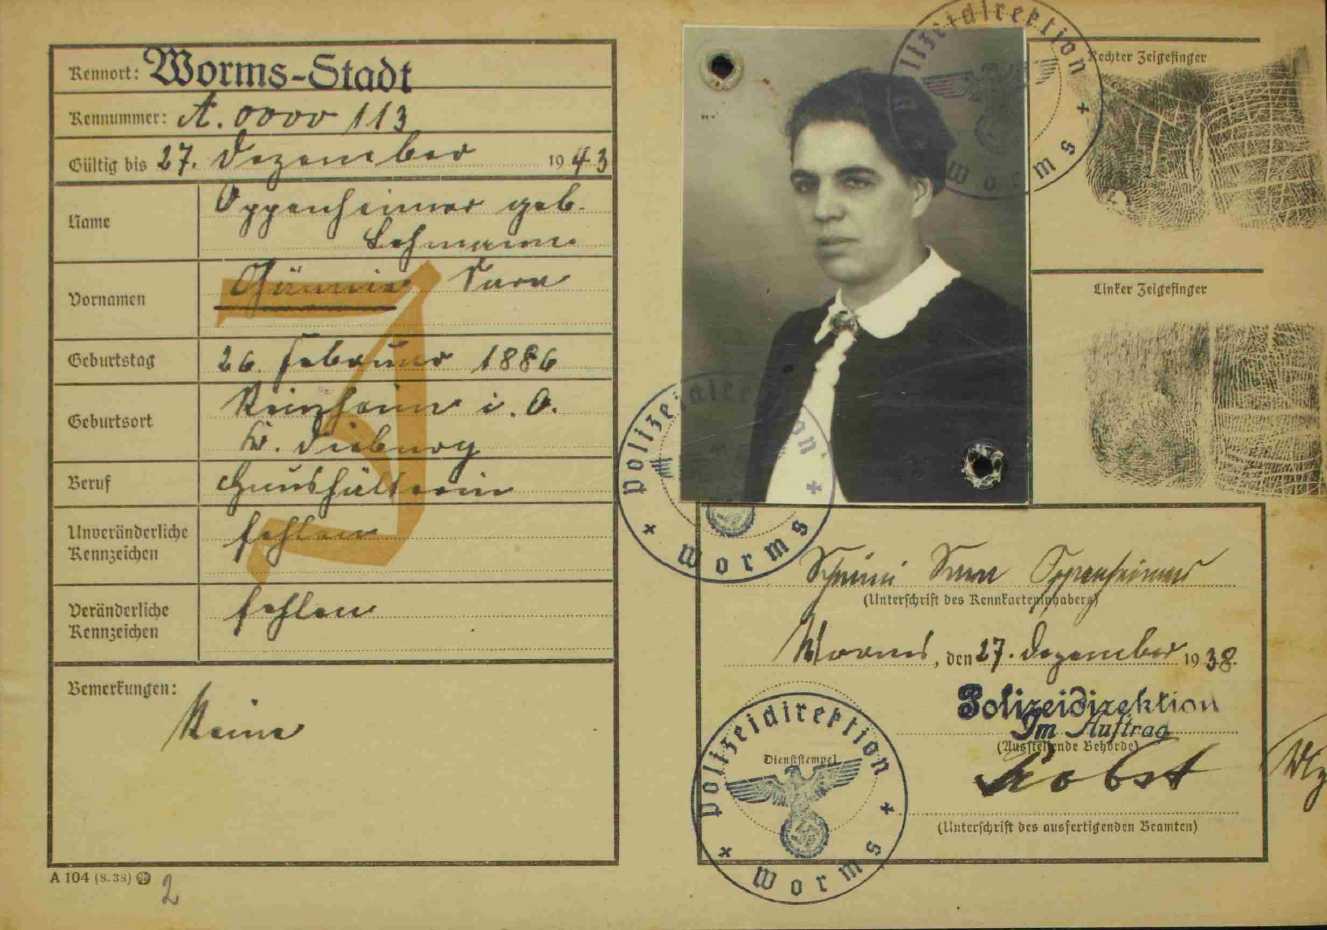 Kennort: Worms-Stadt
Kennummer: A.0000 113
Gültig bis 27. Dezember 1943
Name Oppenheimer geb.
Lehmann
Vornamen Sara
Geburtstag 26. Februar 1886
Geburtsort Reinheim i. O.
Kr. Dieburg
Beruf Haushälterin
Unveränderliche Kennzeichen fehlen
Veränderliche Kennzeichen fehlen
Bemerkungen:
Keine
A 104 (8.38)
2
J
Polizeidirektion
Worms
Rechter Zeigefinger
Linker Zeigefinger
Polizeidirektion
Worms
Sara Oppenheimer
(Unterschrift des Kennkarteninhabers)
Worms, den 27. Dezember 1938.
Polizeidirektion
Im Auftrag
(Ausstellende Behörde)
(Unterschrift des ausfertigenden Beamten)
Polizeidirektion
Dienststempel
Worms